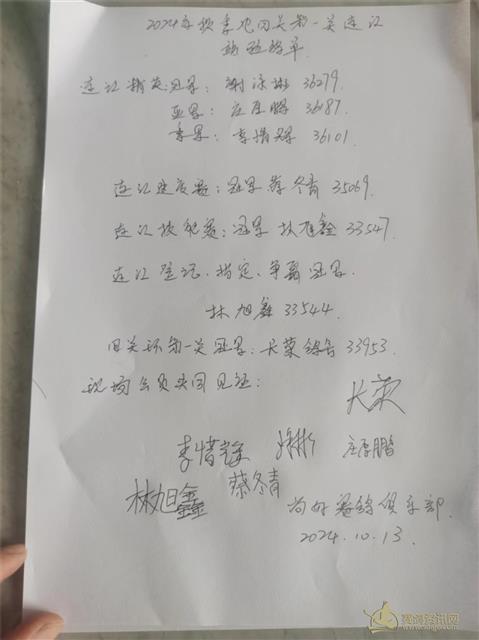 2024年秋季尼四关第一关连江
验鸽报单
连江精英冠军: 谢泳彬 36279.
亚军: 庄厚鹏 36187
季军: 李惜辉 36101.
连江速度赛: 冠军 蔡冬青 35069.
连江接龙赛: 冠军 林旭鑫 33547.
连江登记、指定、争霸 冠军.
林旭鑫 33544.
四关环第一关冠军: 长荣鸽舍 33953.
现场会员共同见证:
长荣
李惜 彬 庄厚鹏
林旭鑫 蔡冬青
尚好赛鸽俱乐部.
2024.10.13.
赛鸽资讯网